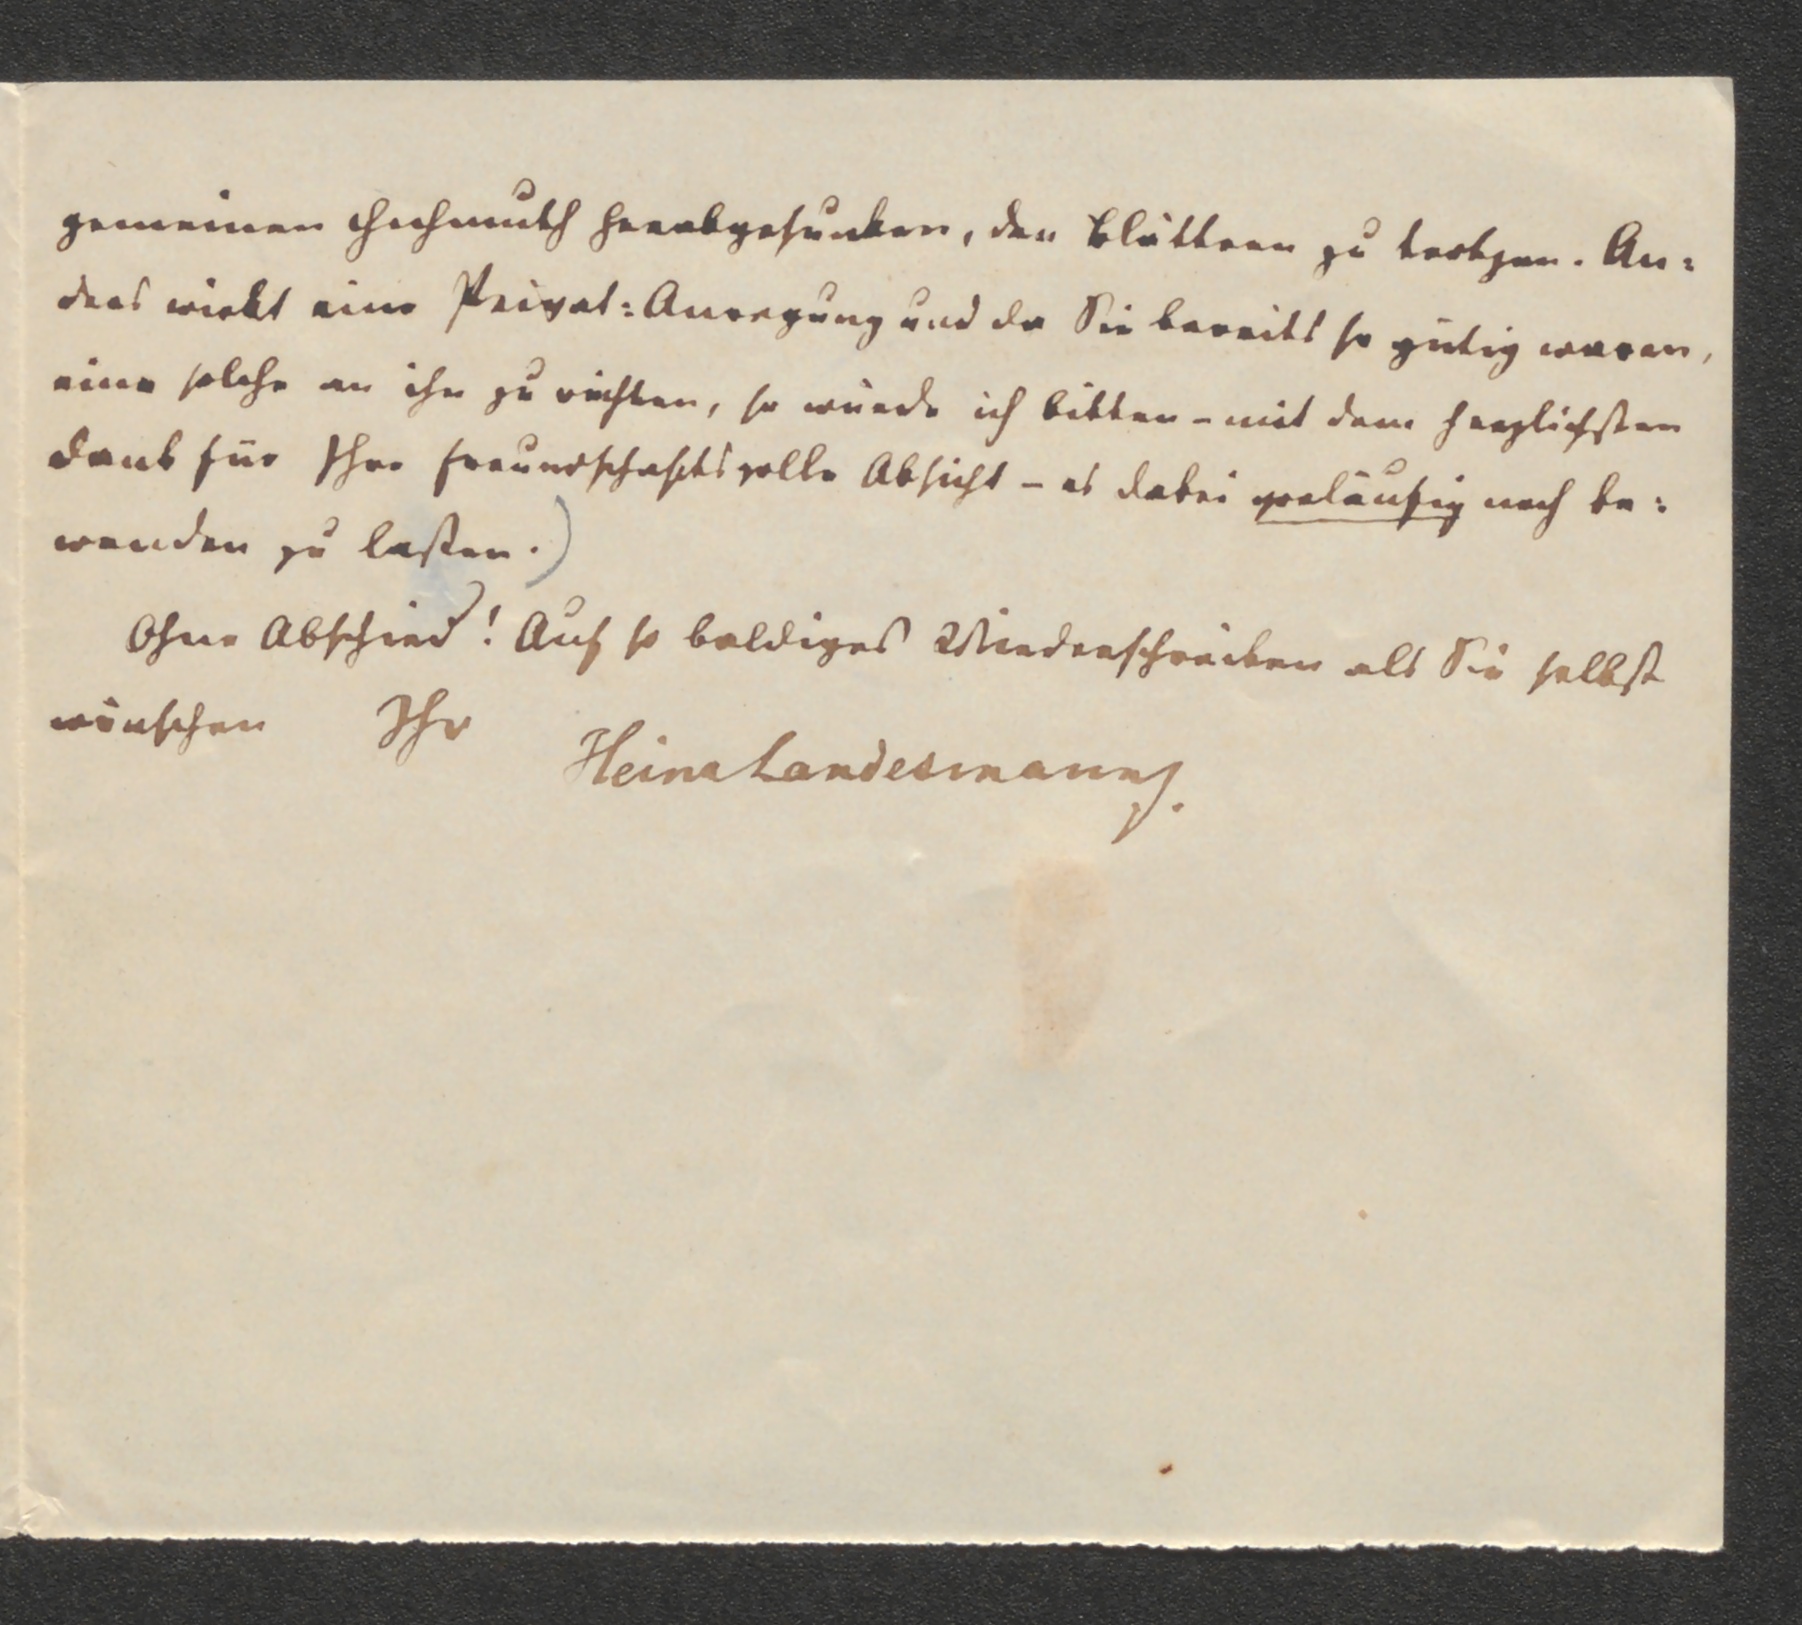 gemeinen Hochmuth herabgesunken, den Blättern zu trotzen. An=
ders wirkt eine Privat=Anregung und da Sie bereits so gütig waren,
eine solche an ihn zu richten, so würde ich bitten – mit dem herzlichsten
Dank für Ihre freundschaftsvolle Absicht – es dabei vorläufig noch be=
wenden zu laßen.)
Ohne Abschied! Auf so baldiges Wiederschreiben als Sie selbst
wünschen Ihr
Heinr Landesmann.